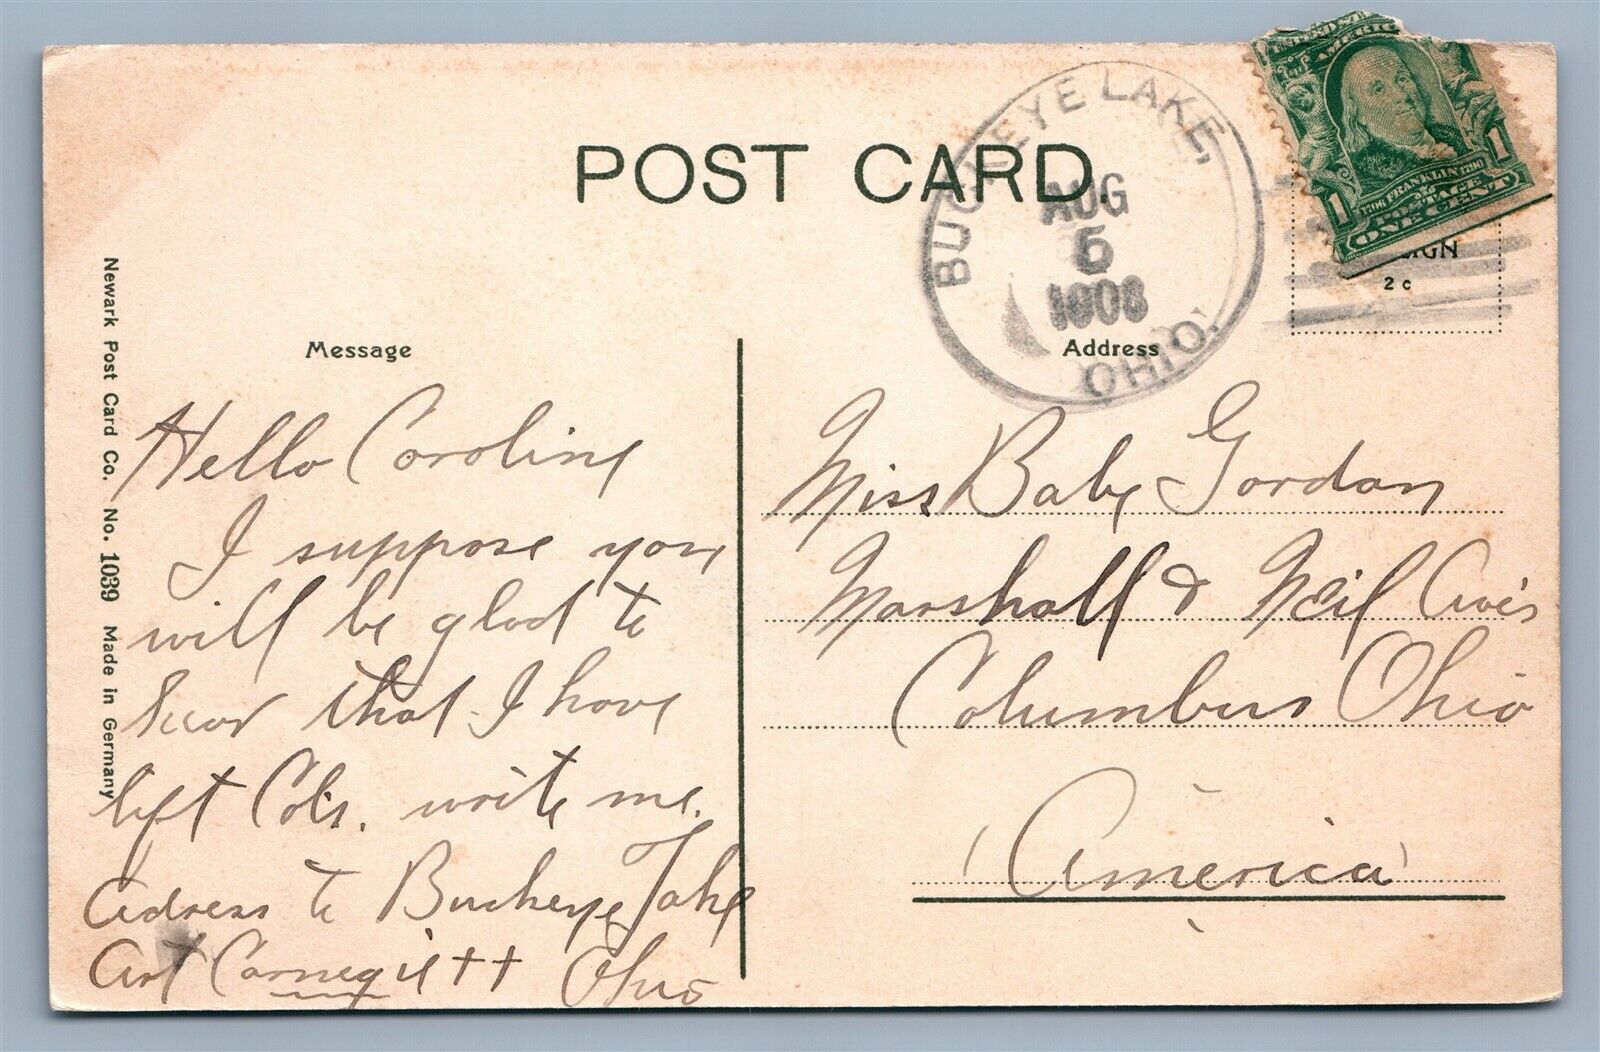 POST CARD.
BUCKEYE LAKE,
AUG
5
1908
OHIO.
1706 FRANKLIN 1790
POSTAGE
1 ONE CENT 1
2 c
Newark Post Card Co. No. 1039 Made in Germany
Message
Hello Caroline
I suppose you
will be glad to
hear that I have
left Cols. write me.
Adress to Buckeye Lake
Art Carnegie ++ Ohio
Address
Miss Babe Gordon
Marshall & Neil Ave's
Columbus Ohio
(America)